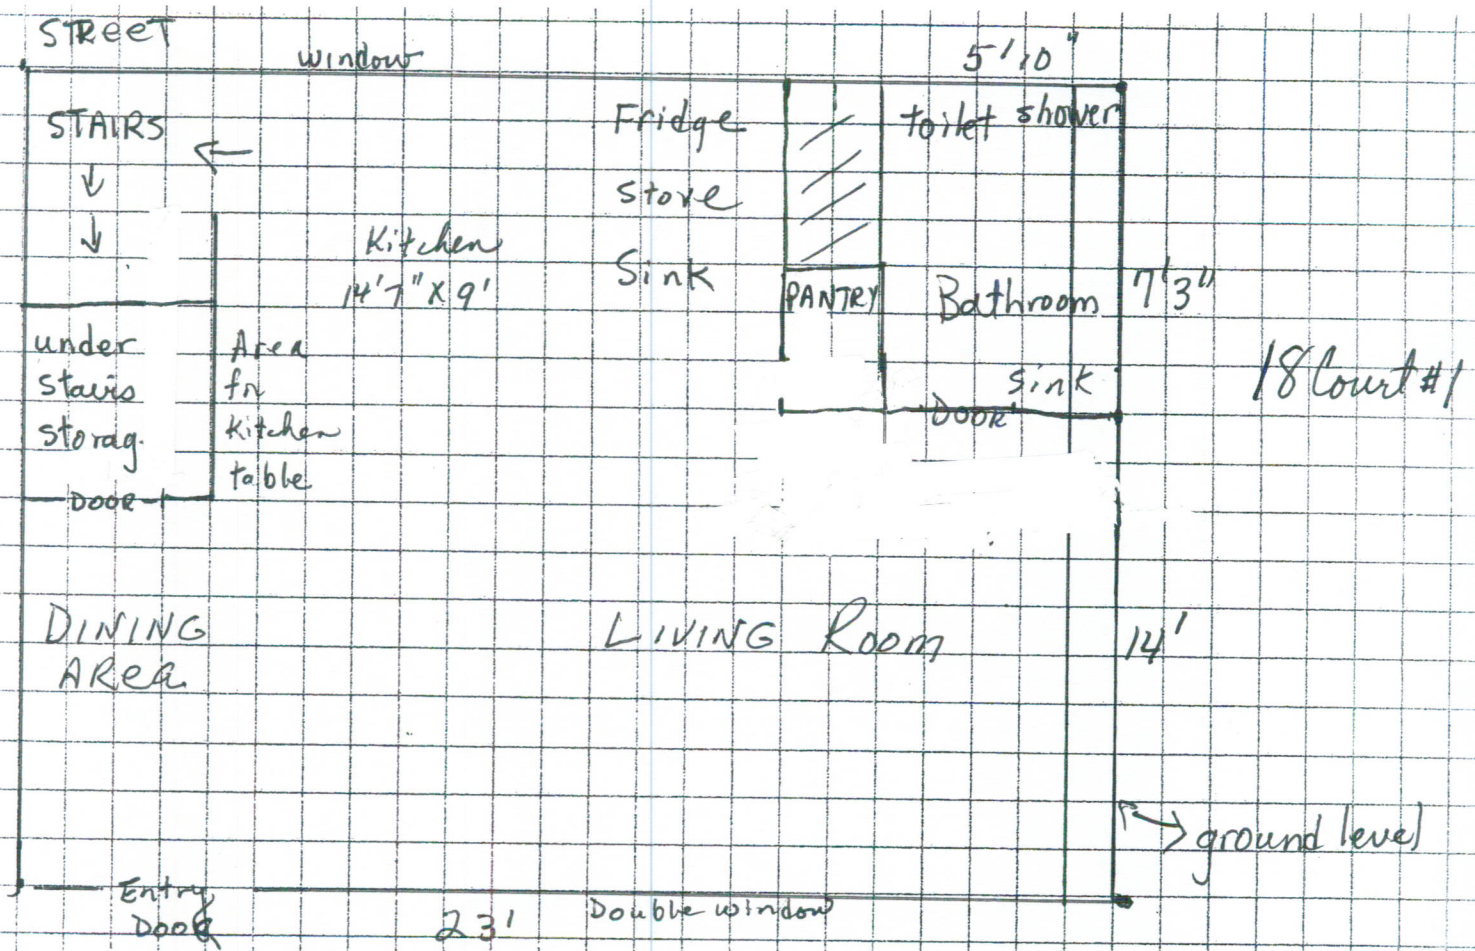 STREET
window
5'10"
STAIRS
Fridge
toilet shower
Stove
Kitchen
14'7" X 9'
Sink
PANTRY
Bathroom
7'3"
under
stairs
storag.
DOOR
Area
for
Kitchen
table
sink
DOOR
18 Court #1
DINING
AREA
LIVING ROOM
14'
ground level
Entry
DOOR
23'
Double window